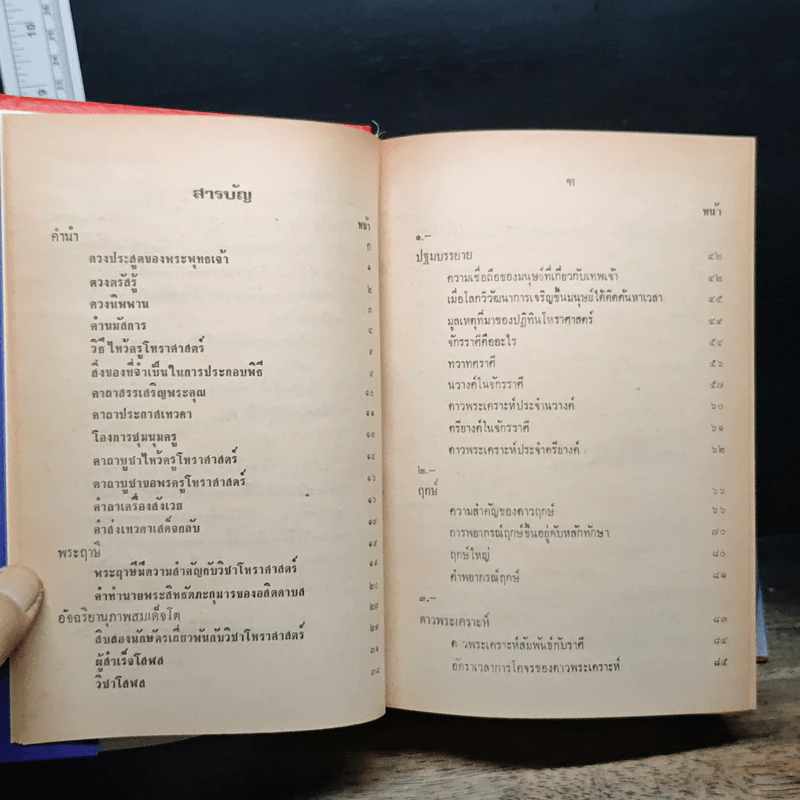 สารบัญ
หน้า
คำนำ ก
ดวงประสูตของพระพุทธเจ้า ๑
ดวงตรัสรู้ ๒
ดวงนิพพาน ๓
คำนมัสการ ๔
วิธีไหว้ครูโหราศาสตร์ ๙
สิ่งของที่จำเป็นในการประกอบพิธี ๙
คาถาสรรเสริญพระคุณ ๑๐
คาถาประกาสเทวดา ๑๑
โองการชุมนุมครู ๑๓
คาถาบูชาไหว้ครูโหราศาสตร์ ๑๔
คาถาบูชาขอพรครูโหราศาสตร์ ๑๖
คำลาเครื่องสังเวย ๑๖
คำส่งเทวดาเสด็จกลับ ๑๘
พระฤาษี ๑๙
พระฤาษีมีความสำคัญกับวิชาโหราศาสตร์ ๑๙
คำทำนายพระสิทธัตถะกุมารของอสิตดาบส ๒๐
อัจฉริยานุภาพสมเด็จโต ๒๘
สิบสองนักษัตรเกี่ยวพันกับวิชาโหราศาสตร์ ๒๙
ผู้สำเร็จโสฬส ๓๑
วิชาโสฬส ๓๘
หน้า
๑.-
ปฐมบรรยาย ๔๒
ความเชื่อถือของมนุษย์ที่เกี่ยวกับเทพเจ้า ๔๒
เมื่อโลกวิวัฒนาการเจริญขึ้นมนุษย์ได้คิดค้นหาเวลา ๔๕
มูลเหตุที่มาของปฏิทินโหราศาสตร์ ๔๙
จักรราศีคืออะไร ๕๔
ทวาทศราศี ๕๖
นวางค์ในจักรราศี ๕๗
ดาวพระเคราะห์ประจำนวางค์ ๖๐
ตรียางค์ในจักรราศี ๖๑
ดาวพระเคราะห์ประจำตรียางค์ ๖๒
๒.-
ฤกษ์ ๖๖
ความสำคัญของดาวฤกษ์ ๖๖
การพยากรณ์ฤกษ์ขึ้นอยู่กับหลักทักษา ๗๐
ฤกษ์ใหญ่ ๘๐
คำพยากรณ์ฤกษ์ ๘๑
๓.-
ดาวพระเคราะห์ ๘๓
ด วพระเคราะห์สัมพันธ์กับราศี ๘๔
อัตราเวลาการโคจรของดาวพระเคราะห์ ๘๕